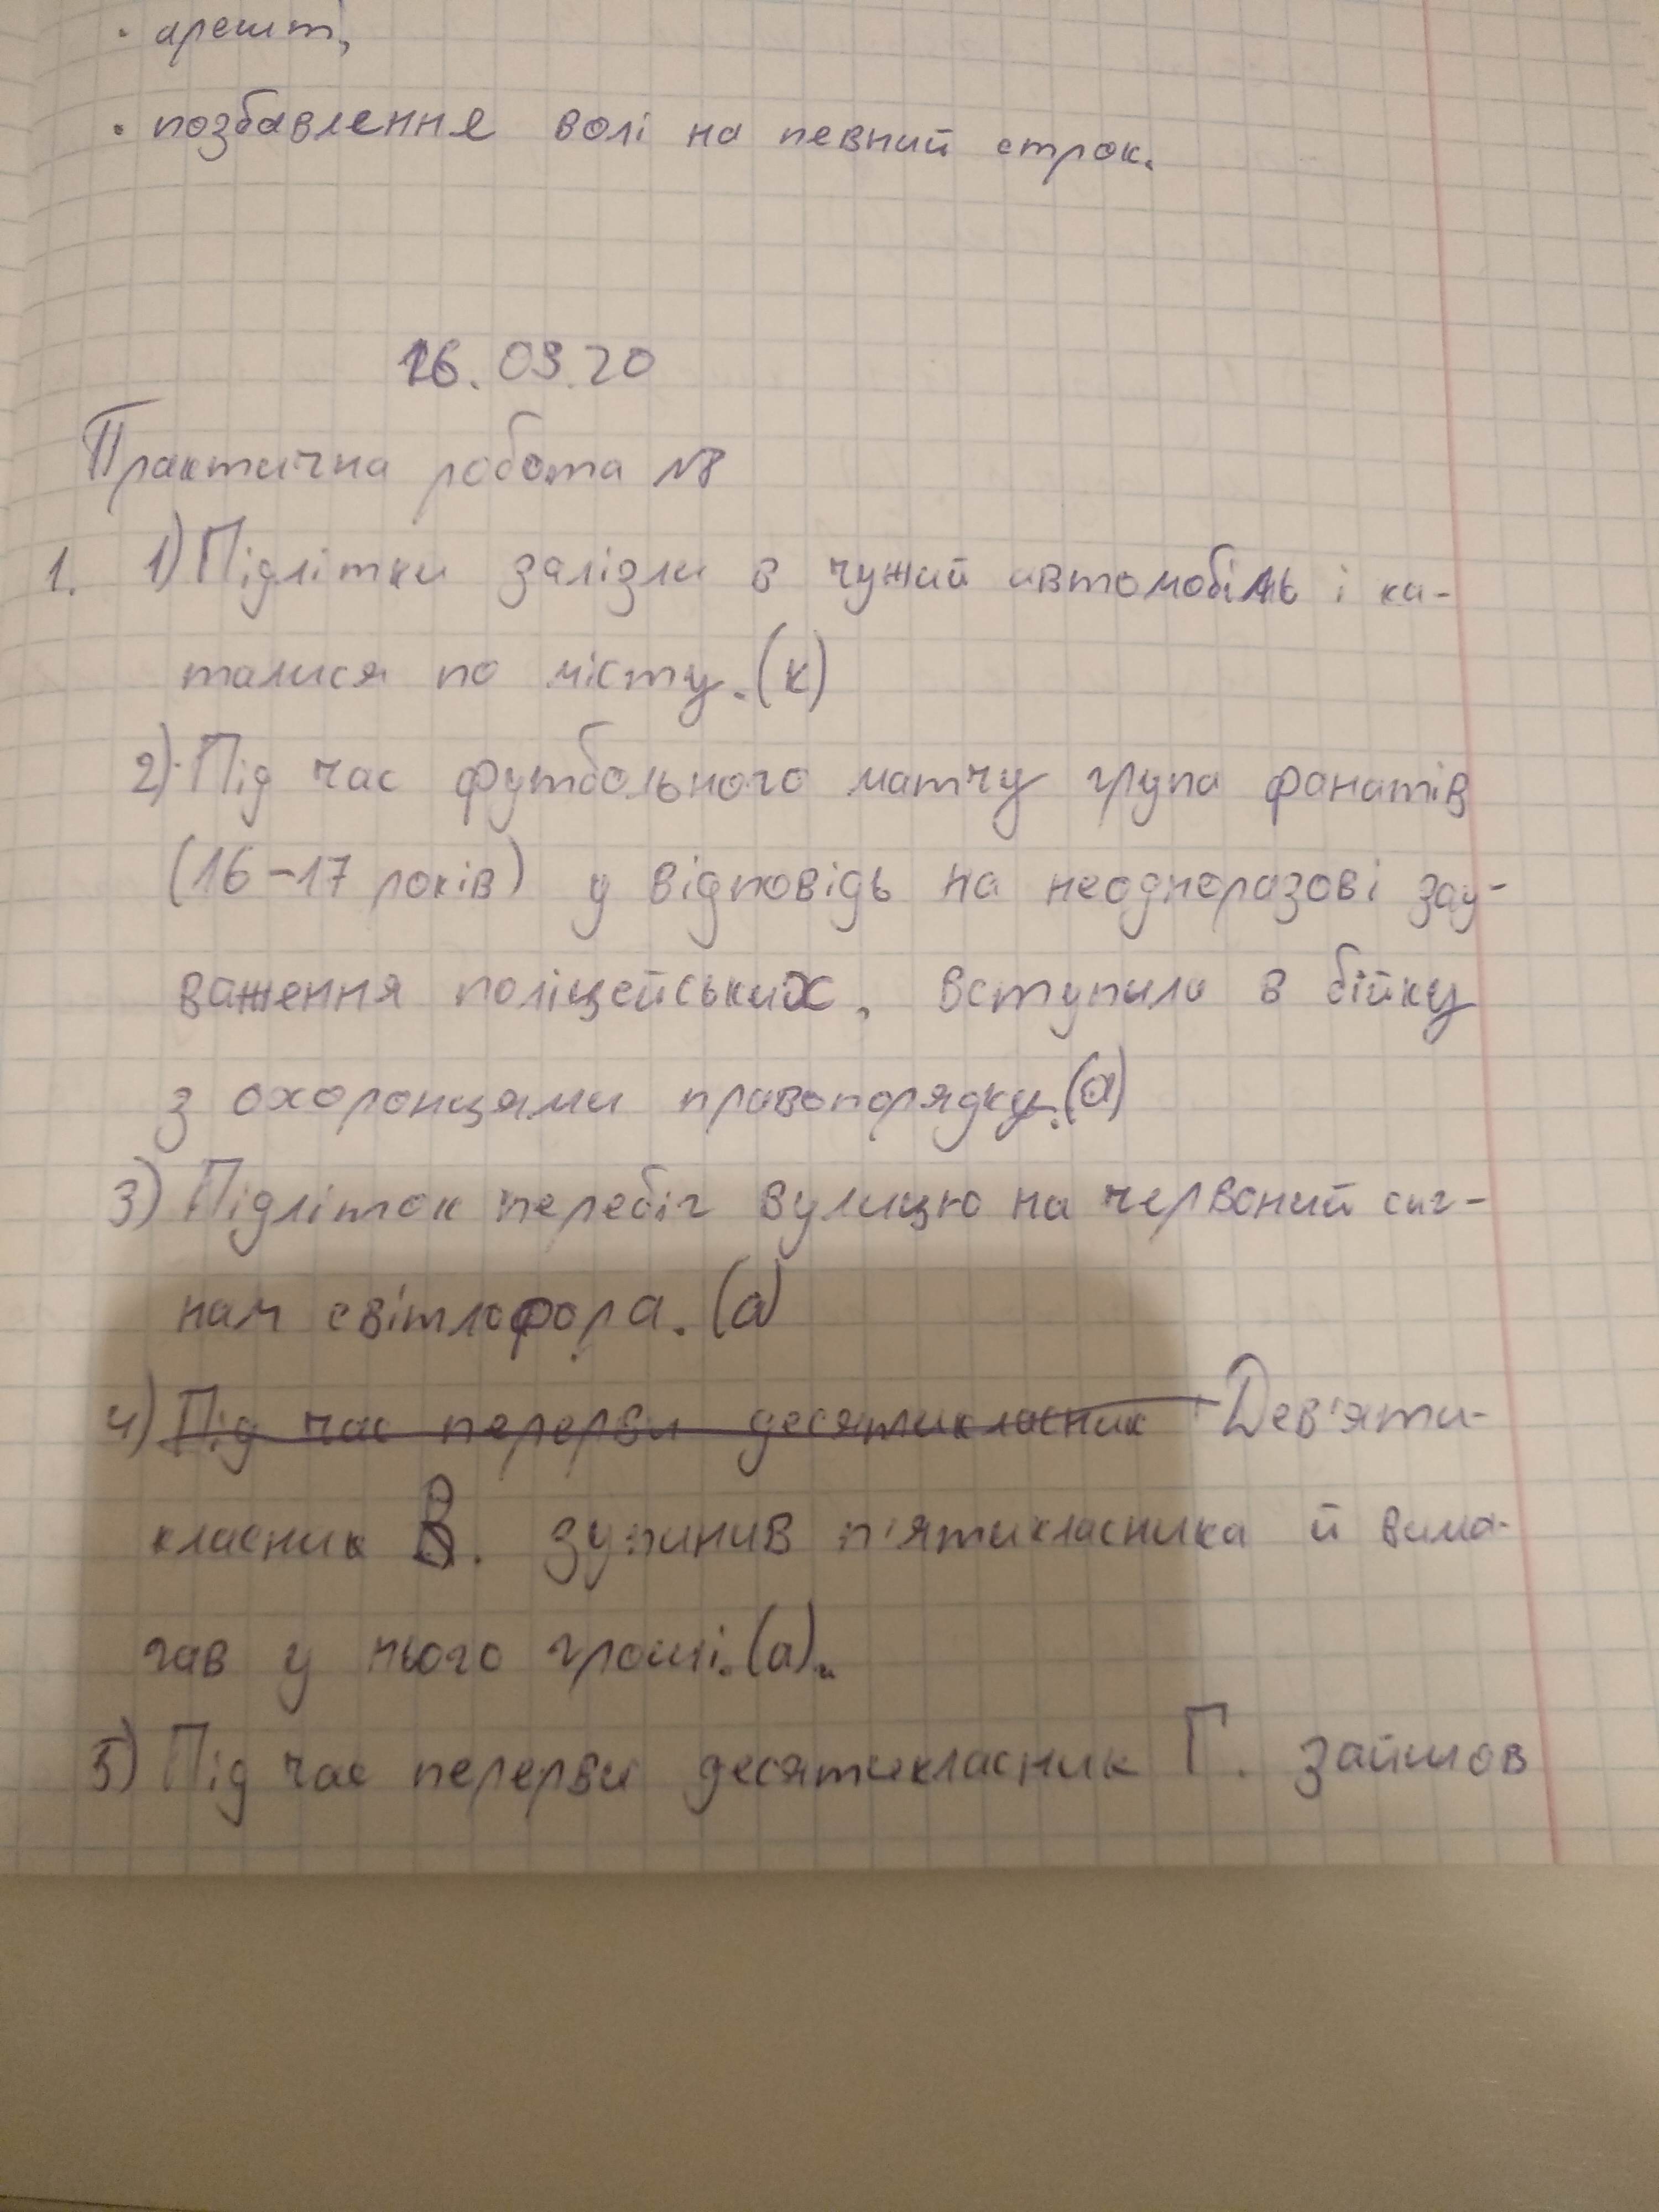 · арешт,
· позбавлення волі на певний строк.
16.03.20
Практична робота №8
1. 1) Підлітки залізли в чужий автомобіль і ка-
талися по місту. (к)
2) Під час футбольного матчу група фанатів
(16-17 років) у відповідь на неодноразові зау-
важення поліцейських, вступила в бійку
з охоронцями правопорядку. (а)
3) Підліток перебіг вулицю на червоний сиг-
нал світлофора. (а)
4) Під час перерви десятикласник Дев'яти-
класник В. зупинив п'ятикласника й вима-
гав у нього гроші. (а).
5) Під час перерви десятикласник Г. зайшов